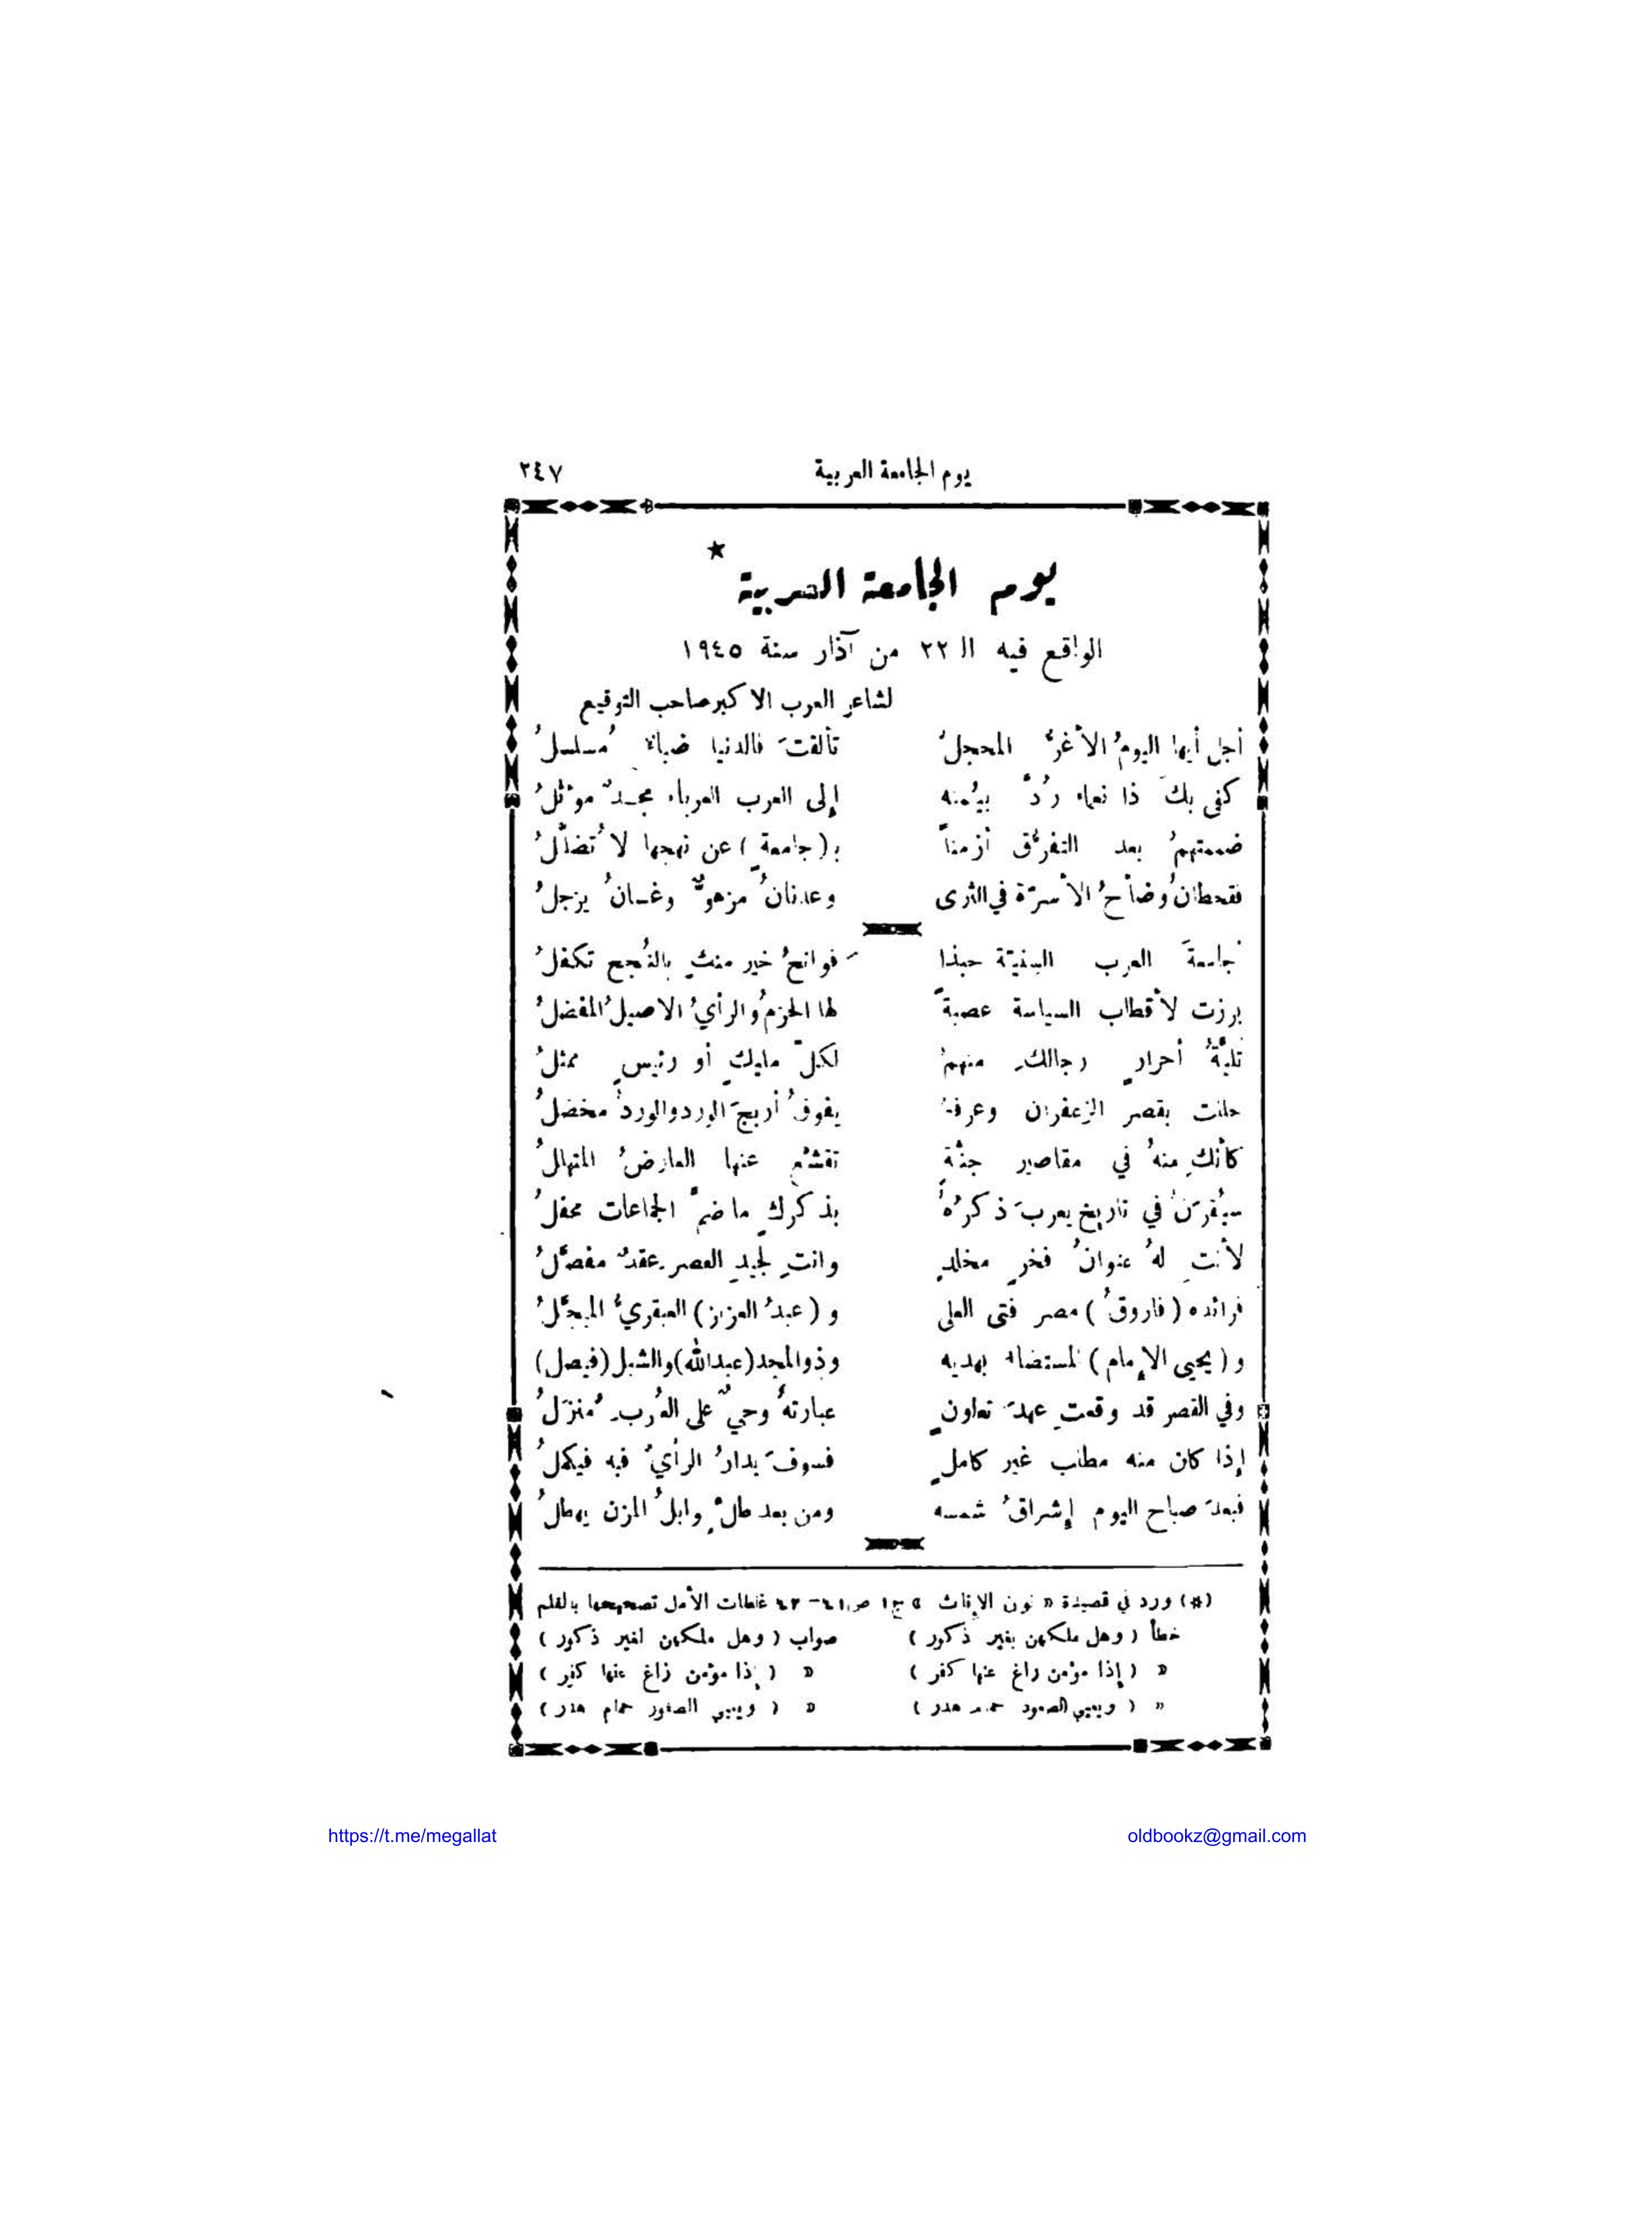 يوم الجامعة العربية ٢٤٧
يوم الجامعة العربية *
الواقع فيه الـ ٢٢ من آذار سنة ١٩٤٥
لشاعر العرب الاكبر صاحب التوقيع
أجل أيها اليومُ الأغرُّ المحجلُ تألقتَ فالدنيا ضياءٌ مُسلسلُ
كفى بكَ ذا نعماء رُدَّ بيُمنه إلى العرب العرباء مجدٌ موْثلُ
ضممتهمُ بعد التفرُّق أزمناً بـ(جامعةٍ) عن نهجها لا تُضلَّلُ
فقحطانُ وضاحُ الأسرّة في الثرى وعدنانُ مزهوٌّ وغسانُ يزجلُ
جامعةَ العرب السنيّة حبذا فواتحُ خير منكِ بالنُجع تكفلُ
برزت لأقطاب السياسة عصبةً لها الحزمُ والرأيُ الاصيلُ المفضلُ
ثلَّةُ أحرارٍ رجالكِ منهمُ لكلّ مليكٍ أو رئيسٍ ممثلُ
حللت بقصر الزعفران وعرفهُ يفوقُ أريجَ الورد والوردُ مخضلُ
كأنكِ منهُ في مقاصير جنّةٍ تقشّع عنها العارضُ المتهللُ
سيُقرَنُ في تاريخ يعربَ ذكرُهُ بذكركِ ما ضمَّ الجماعات محفلُ
لأنتِ لهُ عنوانُ فخرٍ مخلدٍ وانتِ لجيدِ العصر عقدٌ مفصَّلُ
فرائده (فاروقُ) مصر فتى العلى و (عبدُ العزيز) العبقريُّ المبجَّلُ
و (يحيى الإمام) المستضاء بهديه وذو المجد (عبدالله) والشبل (فيصل)
وفي القصر قد وقعتِ عهدَ تعاونٍ عبارتهُ وحيٌ على العُربِ مُنزَلُ
إذا كان منه مطلب غير كاملٍ فسوفَ يدارُ الرأيُ فيه فيكملُ
فبعدَ صباح اليوم إشراقُ شمسه ومن بعد طلٍّ وابلُ المزن يهطلُ
(*) ورد في قصيدة « نون الإناث » ج١ ص٤١-٤٢ غلطات الأمل تصحيحها بالقلم
خطأ (وهل ملكهن بغير ذكور) صواب (وهل ملكهن لغير ذكور)
» (إذا مؤمن راغ عنها كفر) » (إذا مؤمن زاغ عنها كفر)
» (ويحيي الصعود هدر) » (ويحيي الصقور حمام هدر)
https://t.me/megallat oldbookz@gmail.com